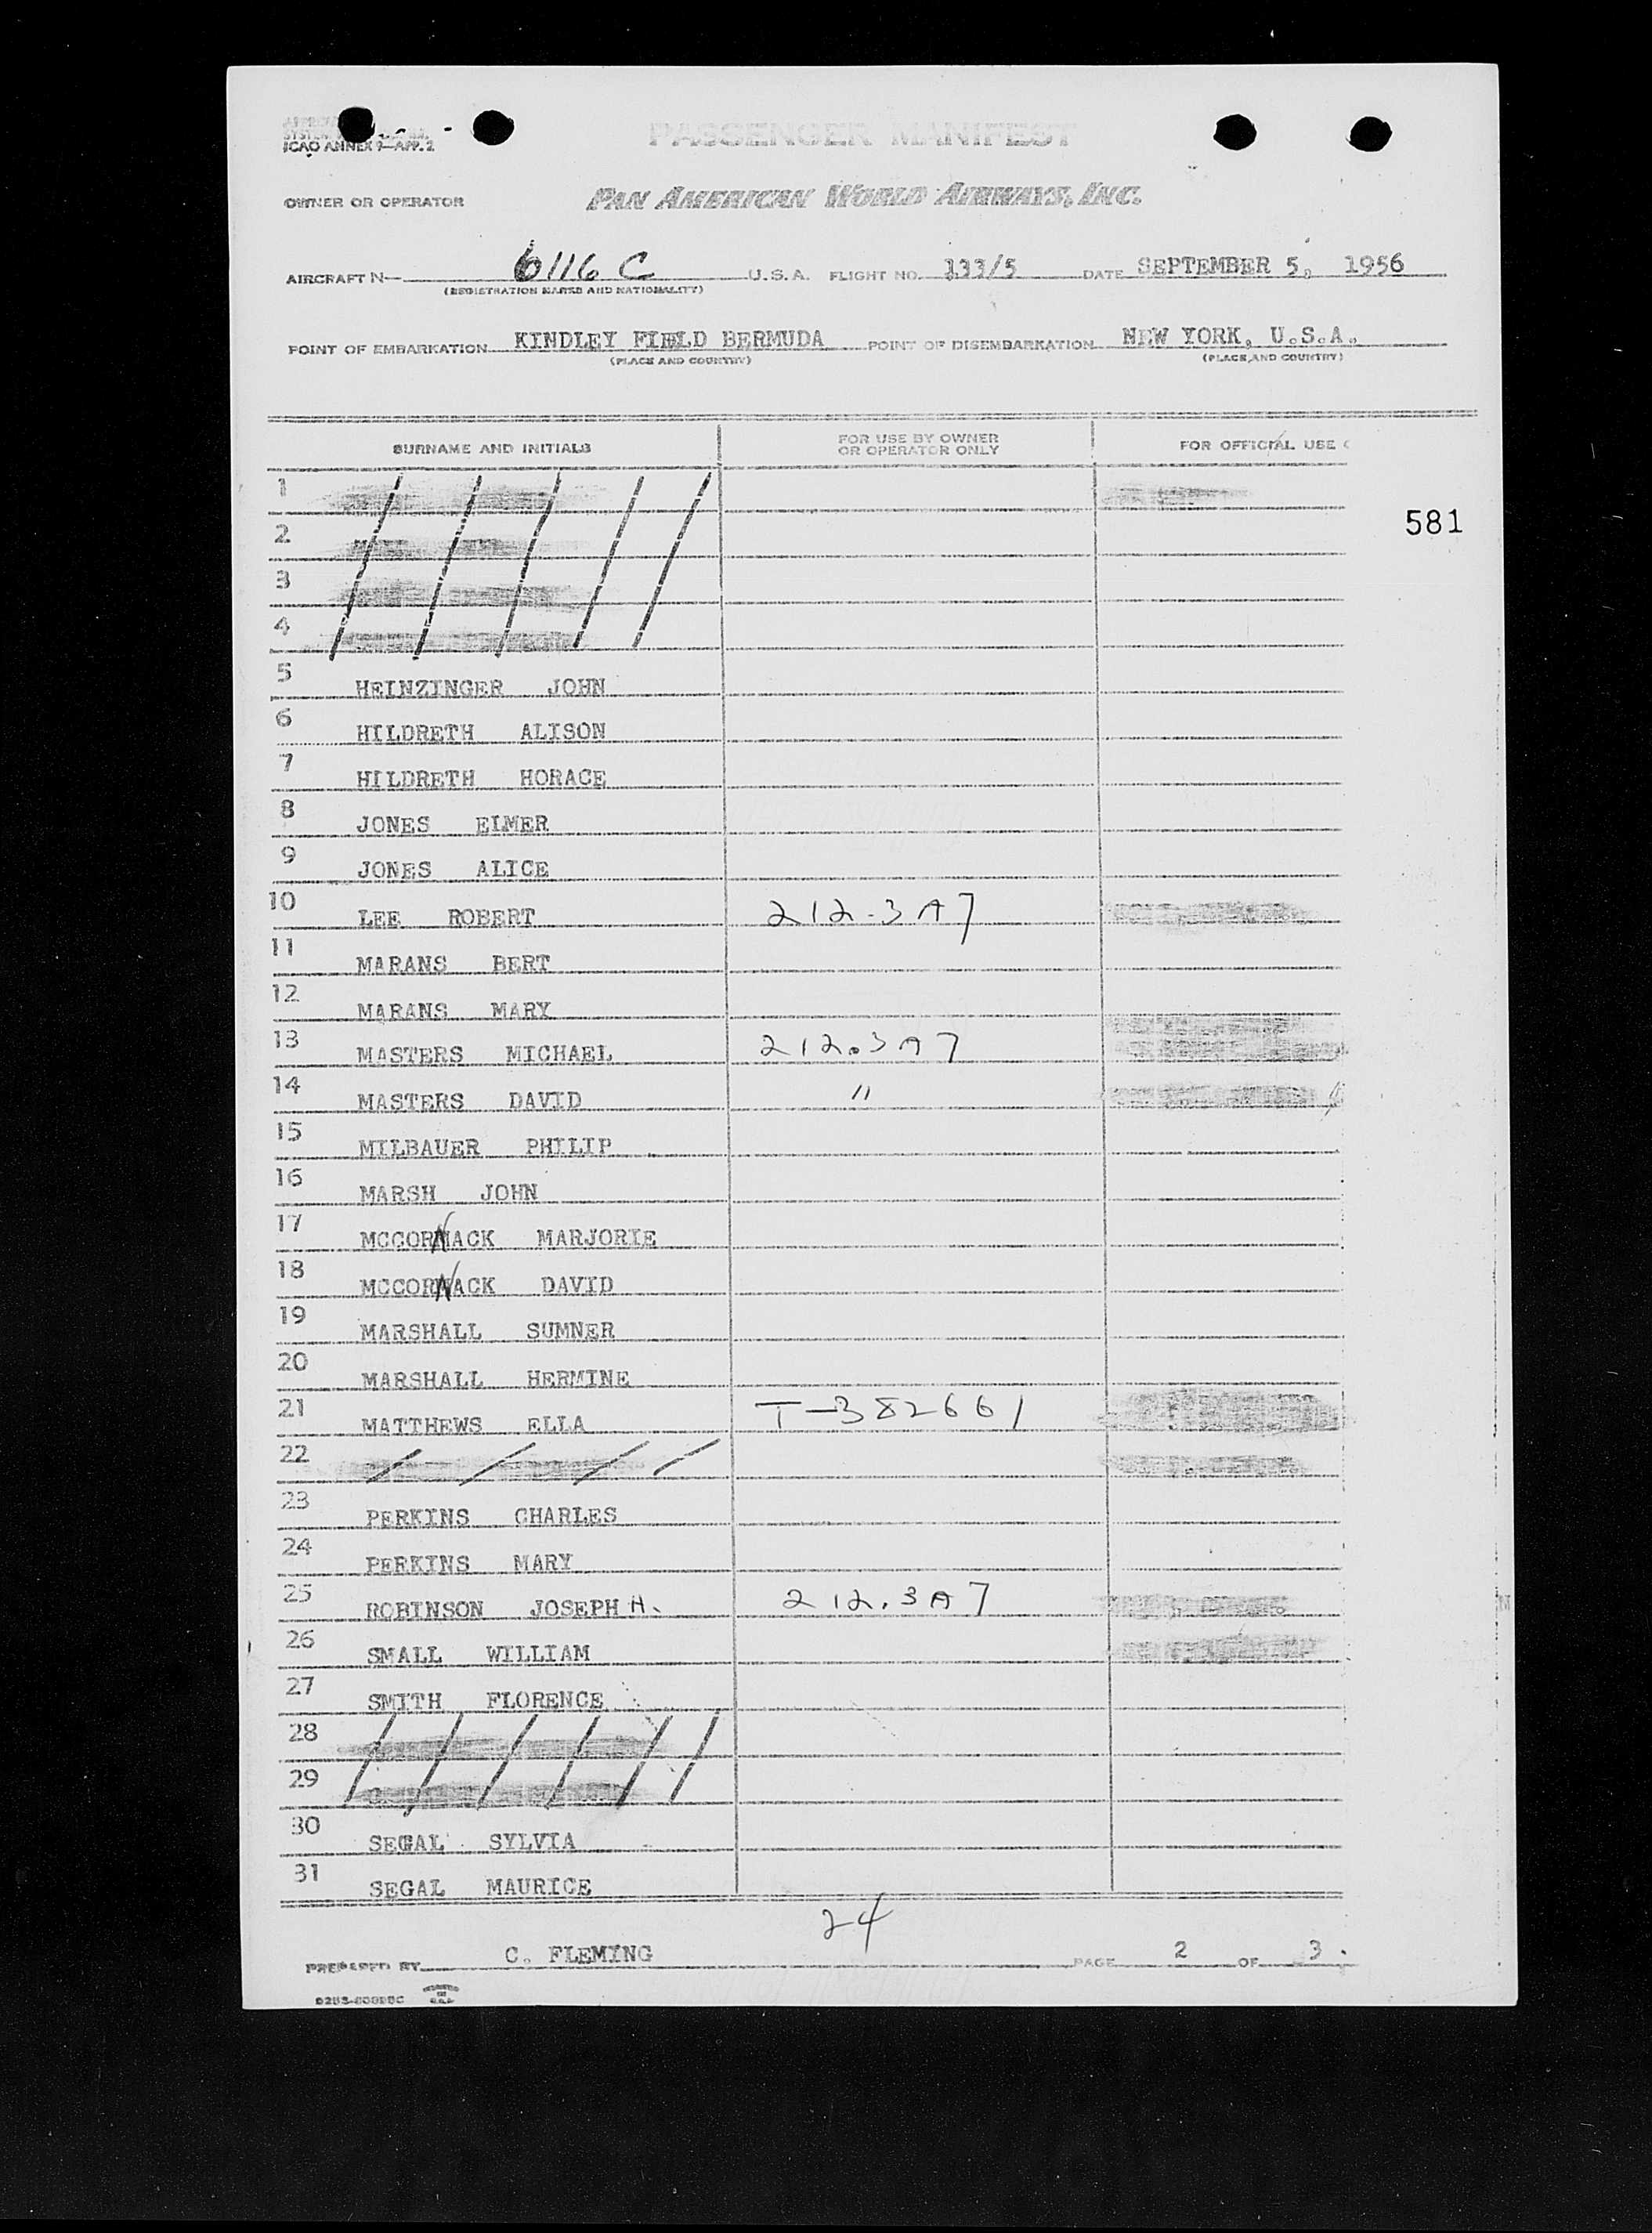 ICAO ANNEX 9—APP. 2
PASSENGER MANIFEST
OWNER OR OPERATOR PAN AMERICAN WORLD AIRWAYS, INC.
AIRCRAFT N— 6116 C U.S.A. FLIGHT NO. 133/5 DATE SEPTEMBER 5, 1956
(REGISTRATION MARKS AND NATIONALITY)
POINT OF EMBARKATION KINDLEY FIELD BERMUDA POINT OF DISEMBARKATION NEW YORK, U.S.A.
(PLACE AND COUNTRY) (PLACE AND COUNTRY)
SURNAME AND INITIALS FOR USE BY OWNER OR OPERATOR ONLY FOR OFFICIAL USE
1
581
2
3
4
5 HEINZINGER JOHN
6 HILDRETH ALISON
7 HILDRETH HORACE
8 JONES ELMER
9 JONES ALICE
10 LEE ROBERT 212.3A7
11 MARANS BERT
12 MARANS MARY
13 MASTERS MICHAEL 212.3A7
14 MASTERS DAVID "
15 MILBAUER PHILIP
16 MARSH JOHN
17 MCCORNACK MARJORIE
18 MCCORNACK DAVID
19 MARSHALL SUMNER
20 MARSHALL HERMINE
21 MATTHEWS ELLA T-382661
22
23 PERKINS CHARLES
24 PERKINS MARY
25 ROBINSON JOSEPH H. 212.3A7
26 SMALL WILLIAM
27 SMITH FLORENCE
28
29
30 SEGAL SYLVIA
31 SEGAL MAURICE
24
PREPARED BY C. FLEMING PAGE 2 OF 3